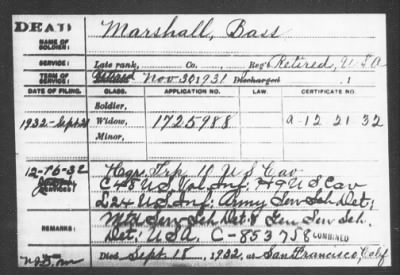 DEAD
Marshall, Bass
NAME OF SOLDIER:
SERVICE: Late rank, Co. Reg't Retired, U S A
TERM OF SERVICE: Nov 30 1931 Discharged , 1
DATE OF FILING. CLASS. APPLICATION NO. LAW. CERTIFICATE NO.
Soldier,
1932-Sept 28 Widow, 1725988 a-12 21 32
Minor,
12-16-32
SERVICES:
Hqrs. Trp. 10 U S Cav
C 48 U S Vol Inf; H 9 U S Cav
L 24 U S Inf; Army Serv Sch Det;
Serv Sch Det & Gen Serv Sch.
REMARKS: Det; U S A. C-853758 COMBINED
Died Sept. 18, 1932, at San Francisco, Calif